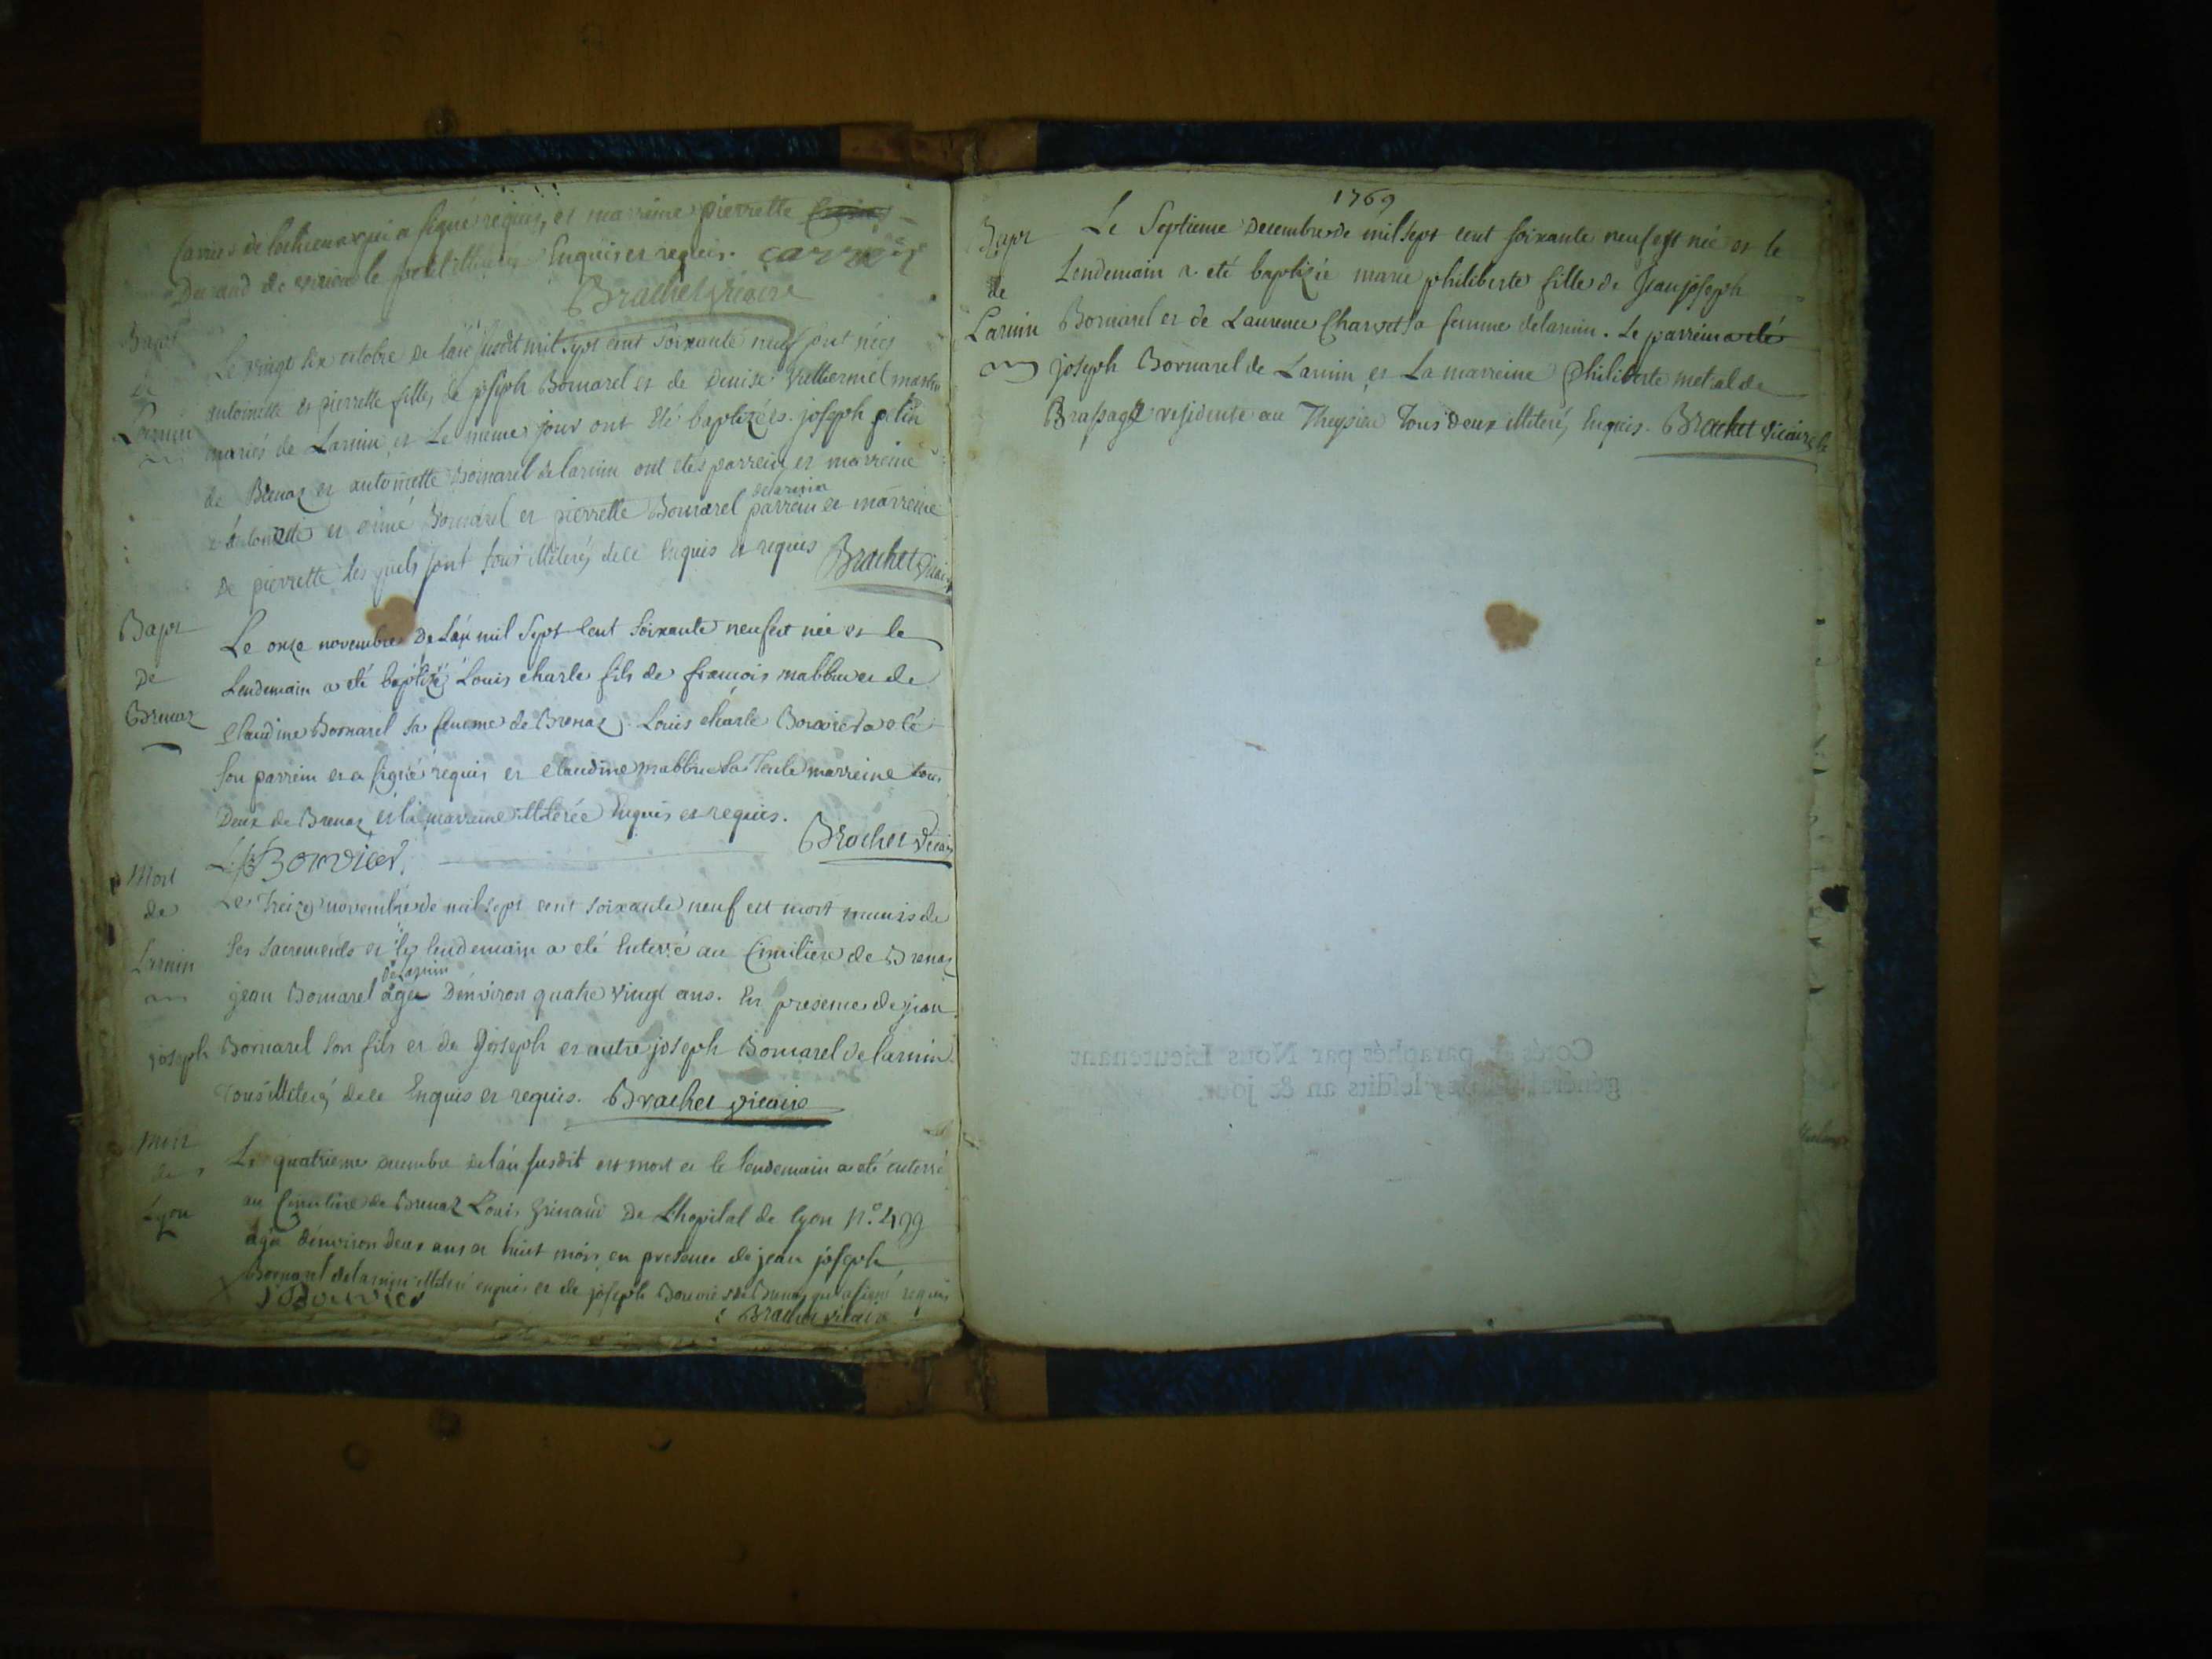 Carrier de lochieu qui a signé requis, et marreine pierrette
Durand de le petit Enquis et requis. carrier
Brachet Vicaire
Bapt Le vingt six octobre de l'an susdit mil sept cent soixante neuf sont nées
de antoinette et pierrette filles de joseph Bornarel et de Denise
Larnin mariés de Larnin, et Le meme jour ont été baptizées. joseph
de Brenaz et antoinette Bornarel de larnin ont étés parrein et marreine
d'antoinette et aimé Bornarel et pierrette Bornarel delarnin parrein et marreine
De pierrette les quels sont tous illiterés dece Enquis et requis Brachet Vicaire
Bapt Le onze novembre De L'an mil Sept Cent Soixante neuf est née et le
De Lendemain a été baptizé Louis charle fils de francois mabbue et de
Brenaz Claudine Bornarel sa femme de Brenaz. Louis charle Bonvier a été
son parrein et a signé requis et claudine mabbue sa Tente marreine tous
Deux de Brenaz et la marreine illiterée Enquis et requis.
L C Bonvier. Brachet Vicaire
Mort Le Treize novembre de mil sept cent soixante neuf est mort munis de
de ses sacrements et le lendemain a été Enterré au Cimitiere de Brenaz
Larnin jean Bornarel delarnin agé D'environ quatre vingt ans. En presence de jean
joseph Bornarel son fils et de joseph et autre joseph Bornarel de larnin
Tous illiterés dece Enquis et requis. Brachet vicaire
Mort Le quatrieme decembre de l'an susdit est mort et le Lendemain a été enterré
de au Cimitiere de Brenaz Louis Grinand De L'hopital de lyon N.º 499
Lyon agé d'environ deux ans et huit mois, en presence de jean joseph
Bornarel delarnin illiteré enquis et de joseph Bonvier de Brenaz qui a signé requis
J Bonvier Brachet vicaire
1769
Bapt Le Septieme Decembre de mil sept cent soixante neuf est née et le
de Lendemain a été baptizée marie philiberte fille de Jean joseph
Larnin Bornarel et de Laurence Charvet sa femme delarnin. Le parrein a été
joseph Bornarel de Larnin et La marreine Philiberte metral de
Brassage residente au Theysieu Tous deux illiterés, Enquis. Brachet Vicaire
Cotés & paraphés par Nous Lieutenant
général lesdits an & jour.